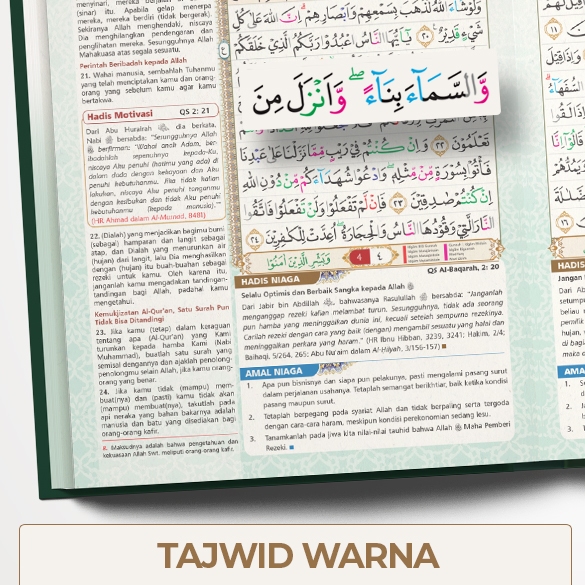 menyinari, mereka berjalan di bawah
(sinar) itu. Apabila gelap menerpa
mereka, mereka berdiri (tidak bergerak).
Sekiranya Allah menghendaki, niscaya
Dia menghilangkan pendengaran dan
penglihatan mereka. Sesungguhnya Allah
Mahakuasa atas segala sesuatu.
Perintah Beribadah kepada Allah
21. Wahai manusia, sembahlah Tuhanmu
yang telah menciptakan kamu dan orang-
orang yang sebelum kamu agar kamu
bertakwa.
Hadis Motivasi QS 2: 21
Dari Abu Hurairah ؓ, dia berkata,
Nabi ﷺ bersabda: "Sesungguhnya Allah
ﷻ berfirman: 'Wahai anak Adam, ber-
ibadahlah sepenuhnya kepada-Ku,
niscaya Aku penuhi (hatimu yang ada) di
dalam dada dengan kekayaan dan Aku
penuhi kebutuhanmu. Jika tidak kalian
lakukan, niscaya Aku penuhi tanganmu
dengan kesibukan dan tidak Aku penuhi
kebutuhanmu (kepada manusia).'"
(HR Ahmad dalam Al-Musnad, 8481)
22. (Dialah) yang menjadikan bagimu bumi
(sebagai) hamparan dan langit sebagai
atap, dan Dialah yang menurunkan air
(hujan) dari langit, lalu Dia menghasilkan
dengan (hujan) itu buah-buahan sebagai
rezeki untuk kamu. Oleh karena itu,
janganlah kamu mengadakan tandingan-
tandingan bagi Allah, padahal kamu
mengetahui.
Kemukjizatan Al-Qur'an, Satu Surah Pun
Tidak Bisa Ditandingi
23. Jika kamu (tetap) dalam keraguan
tentang apa (Al-Qur'an) yang Kami
turunkan kepada hamba Kami (Nabi
Muhammad), buatlah satu surah yang
semisal dengannya dan ajaklah penolong-
penolongmu selain Allah, jika kamu orang-
orang yang benar.
24. Jika kamu tidak (mampu) mem-
buat(nya) dan (pasti) kamu tidak akan
(mampu) membuat(nya), takutlah pada
api neraka yang bahan bakarnya adalah
manusia dan batu yang disediakan bagi
orang-orang kafir.
8. Maksudnya adalah bahwa pengetahuan dan
kekuasaan Allah Swt. meliputi orang-orang kafir.
وَلَوْ شَاۤءَ اللّٰهُ لَذَهَبَ بِسَمْعِهِمْ وَاَبْصَارِهِمْ ۗ اِنَّ اللّٰهَ عَلٰى كُلِّ
شَيْءٍ قَدِيْرٌ ࣖ ٢٠ يٰٓاَيُّهَا النَّاسُ اعْبُدُوْا رَبَّكُمُ الَّذِيْ خَلَقَكُمْ
وَّالسَّمَاۤءَ بِنَاۤءً ۖ وَّاَنْزَلَ مِنَ
تَعْلَمُوْنَ ٢٢ وَاِنْ كُنْتُمْ فِيْ رَيْبٍ مِّمَّا نَزَّلْنَا عَلٰى عَبْدِنَا
فَأْتُوْا بِسُوْرَةٍ مِّنْ مِّثْلِهٖ ۖ وَادْعُوْا شُهَدَاۤءَكُمْ مِّنْ دُوْنِ اللّٰهِ
اِنْ كُنْتُمْ صٰدِقِيْنَ ٢٣ فَاِنْ لَّمْ تَفْعَلُوْا وَلَنْ تَفْعَلُوْا فَاتَّقُوا
النَّارَ الَّتِيْ وَقُوْدُهَا النَّاسُ وَالْحِجَارَةُ ۖ اُعِدَّتْ لِلْكٰفِرِيْنَ ٢٤
وَبَشِّرِ الَّذِيْنَ اٰمَنُوْا
4 ٤
HADIS NIAGA QS Al-Baqarah, 2: 20
Selalu Optimis dan Berbaik Sangka kepada Allah ﷻ
Dari Jabir bin Abdillah ؓ, bahwasanya Rasulullah ﷺ bersabda: "Janganlah
menganggap rezeki kalian melambat turun. Sesungguhnya, tidak ada seorang
pun hamba yang meninggalkan dunia ini, kecuali setelah sempurna rezekinya.
Carilah rezeki dengan cara yang baik (dengan) mengambil sesuatu yang halal dan
meninggalkan perkara yang haram." (HR Ibnu Hibban, 3239, 3241; Hakim, 2/4;
Baihaqi, 5/264, 265; Abu Nu'aim dalam Al-Hilyah, 3/156-157)
AMAL NIAGA
1. Apa pun bisnisnya dan siapa pun pelakunya, pasti mengalami pasang surut
dalam perjalanan usahanya. Tetaplah semangat berikhtiar, baik ketika kondisi
pasang maupun surut.
2. Tetaplah berpegang pada syariat Allah dan tidak berpaling serta tergoda
dengan cara-cara haram, meskipun kondisi perekonomian sedang lesu.
3. Tanamkanlah pada jiwa kita nilai-nilai tauhid bahwa Allah ﷻ Maha Pemberi
Rezeki.
TAJWID WARNA